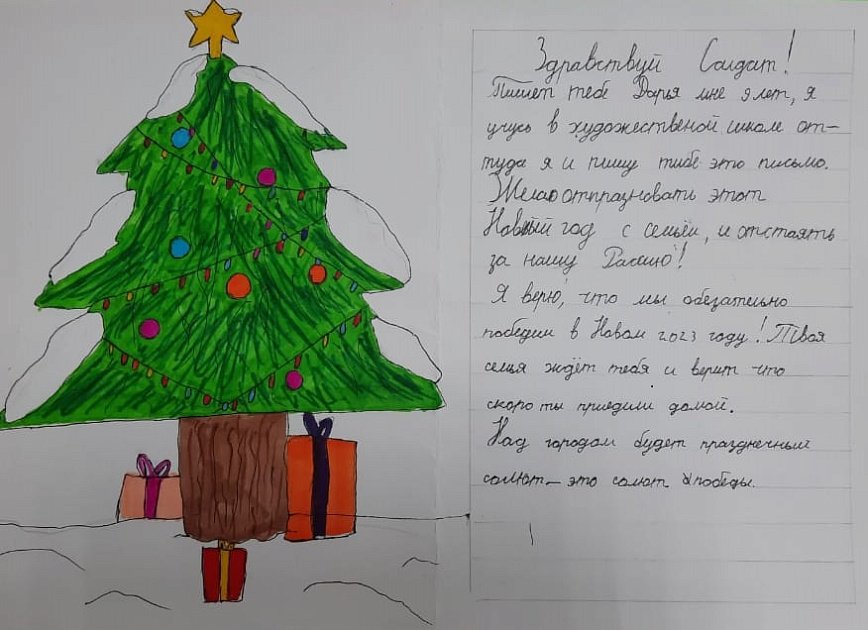 Здравствуй Солдат!
Пишет тебе Дарья мне 9 лет, я
учусь в художественой школе от-
туда я и пишу тибе это письмо.
Желаю отпразновать этот
Новый год с семьёй, и отстоять
за нашу Рассию!
Я верю, что мы обезательно
победим в Новом 2023 году! Твоя
семья ждёт тебя и верит что
скоро ты приедиш домой.
Над городом будет празднечный
салют - это салют победы.